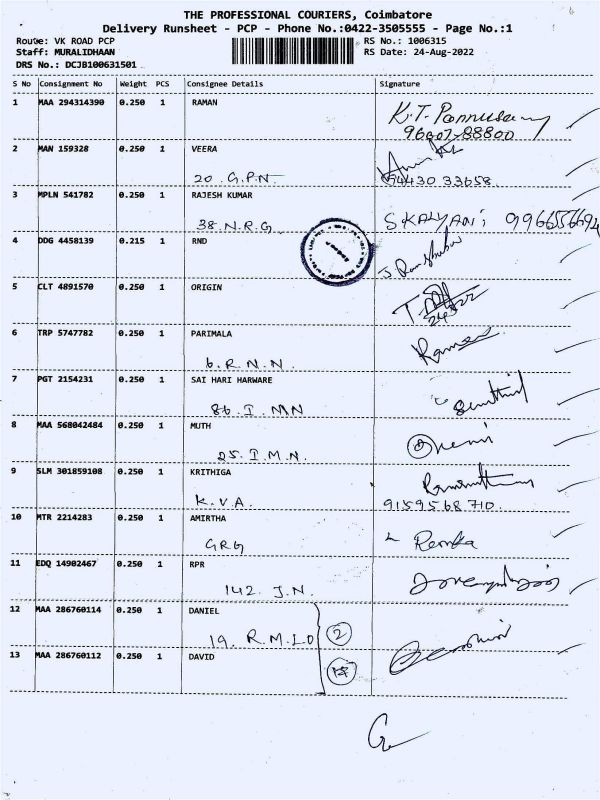 THE PROFESSIONAL COURIERS, Coimbatore
Delivery Runsheet - PCP - Phone No.:0422-3505555 - Page No.:1
Route: VK ROAD PCP RS No.: 1006315
Staff: MURALIDHAAN RS Date: 24-Aug-2022
DRS No.: DCJB100631501
S No Consignment No Weight PCS Consignee Details Signature
1 MAA 294314390 0.250 1 RAMAN
2 MAN 159328 0.250 1 VEERA
20 G.P.N. 94430 33658
3 MPLN 541782 0.250 1 RAJESH KUMAR
38 N.R.G. SKALYANi
4 DDG 4458139 0.215 1 RND
5 CLT 4891570 0.250 1 ORIGIN
6 TRP 5747782 0.250 1 PARIMALA
6. R.N.N.
7 PGT 2154231 0.250 1 SAI HARI HARWARE
86. I. MN
8 MAA 568042484 0.250 1 MUTH
25. I.M.N.
9 SLM 301859108 0.250 1 KRITHIGA
K.V.A. 9159568710.
10 MTR 2214283 0.250 1 AMIRTHA
GRG
11 EDQ 14902467 0.250 1 RPR
142. J.N.
12 MAA 286760114 0.250 1 DANIEL
19. R.M.LO 2
13 MAA 286760112 0.250 1 DAVID